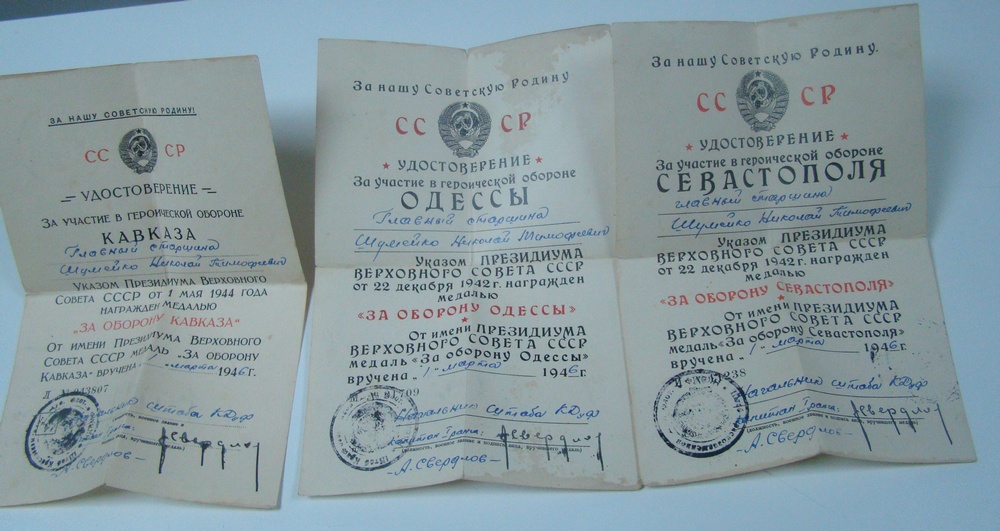 ЗА НАШУ СОВЕТСКУЮ РОДИНУ!
СС СР
УДОСТОВЕРЕНИЕ
ЗА УЧАСТИЕ В ГЕРОИЧЕСКОЙ ОБОРОНЕ
КАВКАЗА
Главный старшина
Шумейко Николай Тимофеевич
Указом Президиума Верховного
Совета СССР от 1 мая 1944 года
награжден медалью
„ЗА ОБОРОНУ КАВКАЗА“
От имени Президиума Верховного
Совета СССР медаль „За оборону
Кавказа“ вручена марта 1946 г.
Л № 043807
штаба КДуф
А. Свердлов
За нашу Советскую Родину
СС СР
★ УДОСТОВЕРЕНИЕ ★
За участие в героической обороне
ОДЕССЫ
Главный старшина
Шумейко Николай Тимофеевич
Указом ПРЕЗИДИУМА
ВЕРХОВНОГО СОВЕТА СССР
от 22 декабря 1942 г. награжден
медалью
«ЗА ОБОРОНУ ОДЕССЫ»
От имени ПРЕЗИДИУМА
ВЕРХОВНОГО СОВЕТА СССР
медаль «За оборону Одессы»
вручена „1“ марта 1946 г.
Начальник штаба КДуф
капитан 3 ранга:
-А. Свердлов-
За нашу Советскую Родину.
СС СР
★ УДОСТОВЕРЕНИЕ ★
За участие в героической обороне
СЕВАСТОПОЛЯ
главный старшина
Шумейко Николай Тимофеевич
Указом ПРЕЗИДИУМА
ВЕРХОВНОГО СОВЕТА СССР
от 22 декабря 1942 г. награжден
медалью
«ЗА ОБОРОНУ СЕВАСТОПОЛЯ»
От имени ПРЕЗИДИУМА
ВЕРХОВНОГО СОВЕТА СССР
медаль «За оборону Севастополя»
вручена „1“ марта 1946 г.
238
Начальник штаба КДуф
капитан 3 ранга:
(должность, военное звание и подпись лица, вручившего медаль)
-А. Свердлов-